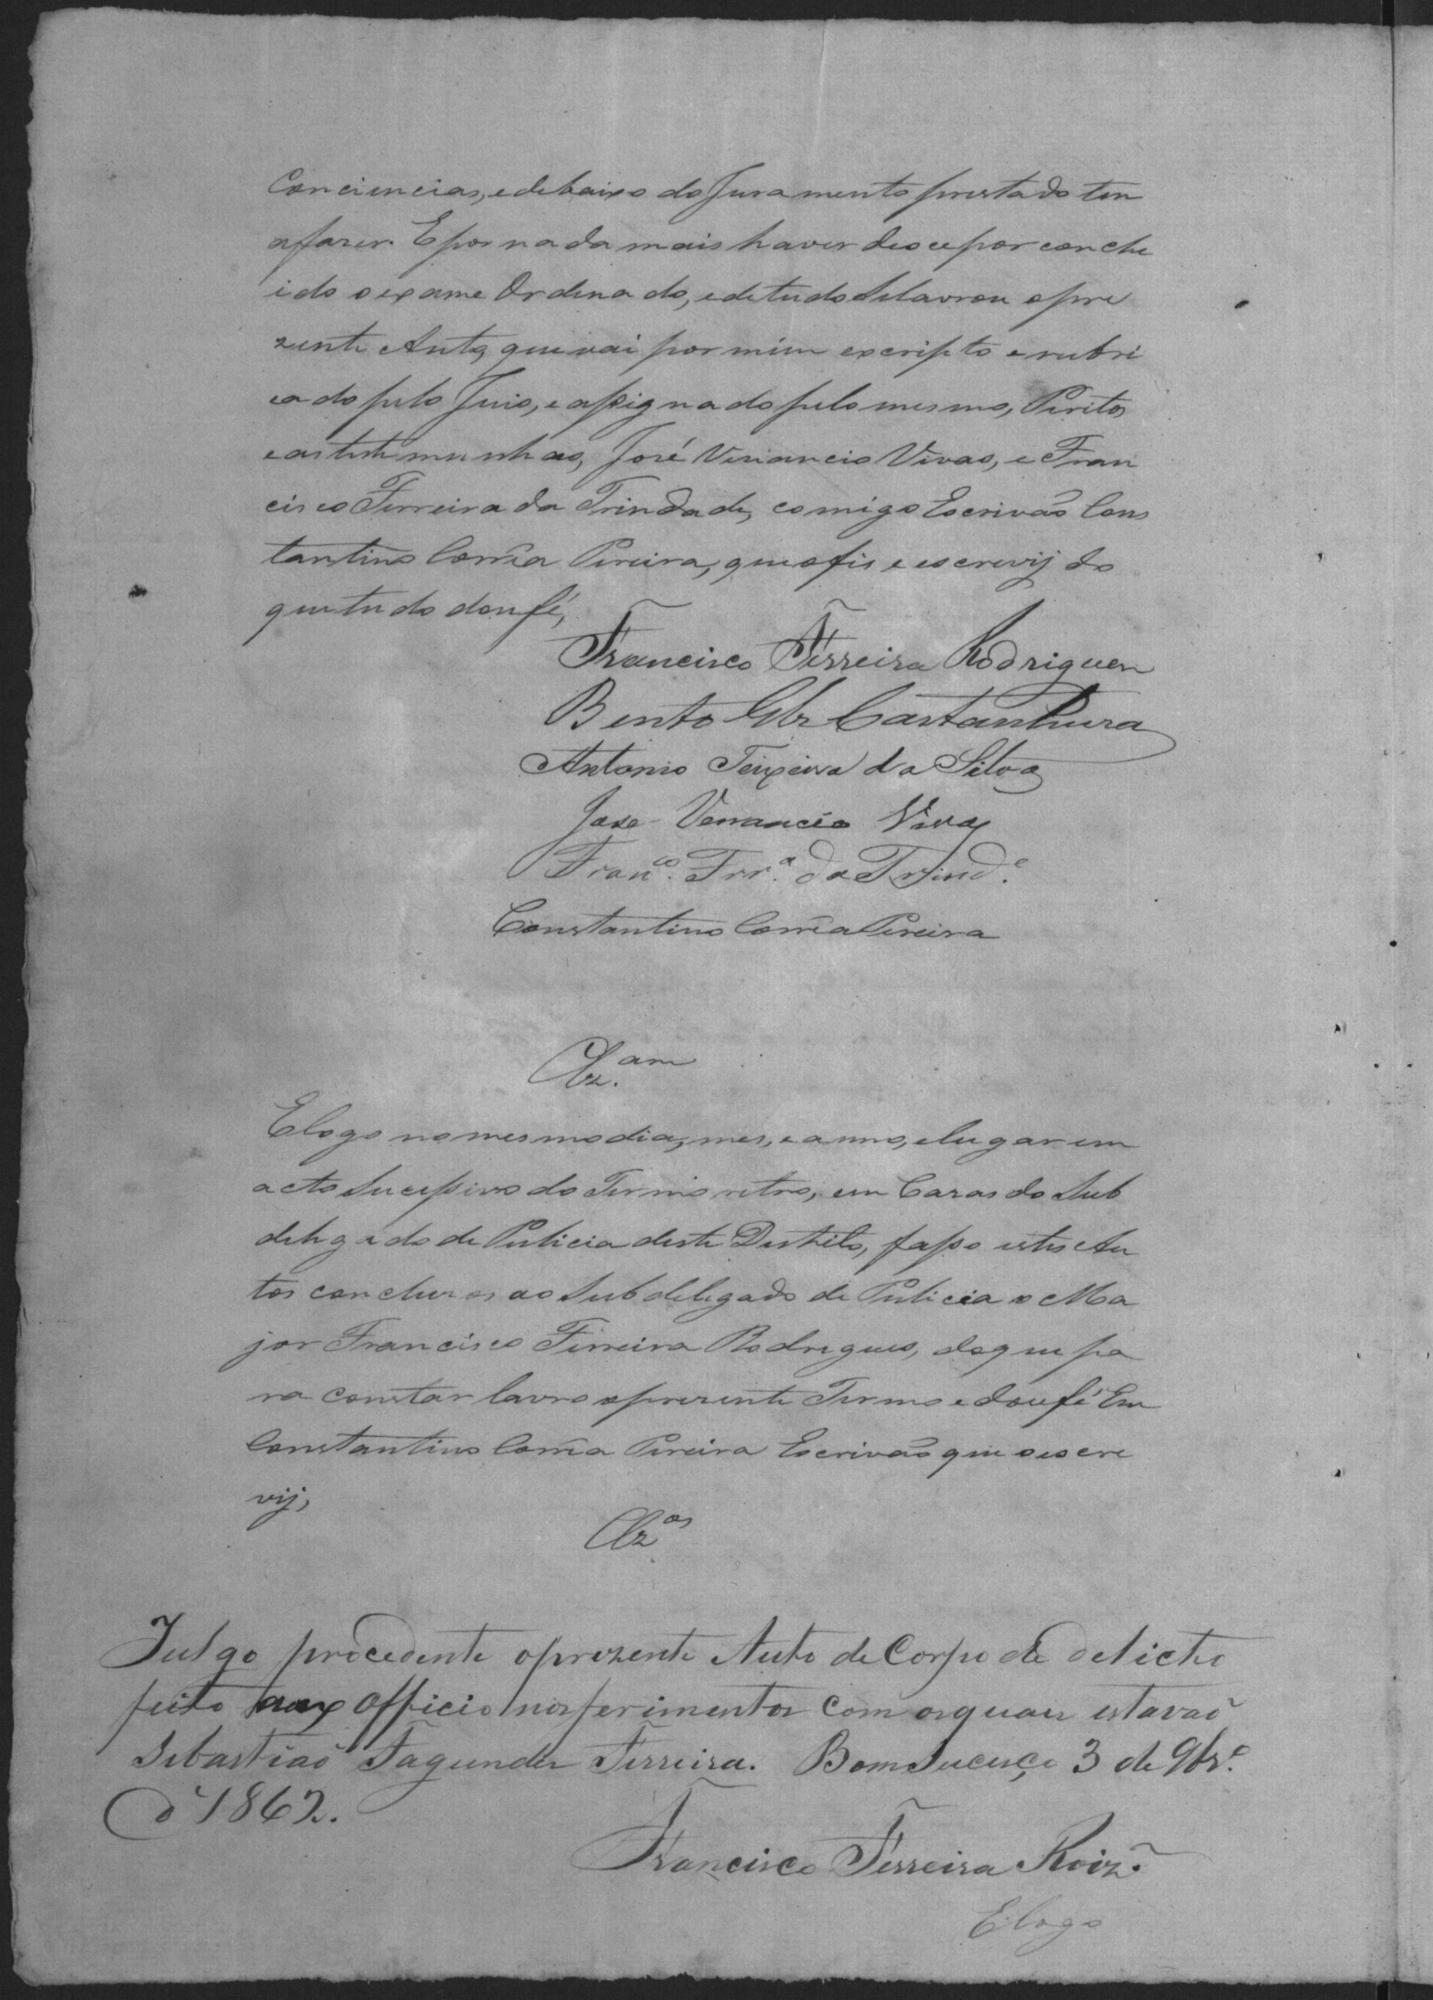 Conciencias, e debaixo do Juramento prestado tem
afazer. E por nada mais haver deo ce por conclu
ido o exame Ordenado, e de tudo Selavrou o pre
zente Auto, que vai por mim escripto e rubri
cado pelo Juis, e assignado pelo mesmo, Peritos
e as testemunhas, José Venancio Vivas, e Fran
cisco Ferreira da Trindade, comigo Escrivaõ Cons
tantino Corrêa Pereira, que o fis e escrevij do
que tudo dou fé,
Francisco Ferreira Rodrigues
Bento Glz Castanheira
Antonio Teixeira da Silva
Jose Venancio Vivas
Fran.co Frr.a da Trind.e
Constantino Corrêa Pereira
Clz.am
E logo no mesmo dia, mes, e anno, e lugar em
acto Sucessivo do Termo retro, em Cazas do Sub
delegado de Pulicia deste Destrito, fasso estes Au
tos concluzos ao Subdelegado de Pulicia o Ma
jor Francisco Ferreira Rodrigues, do que pa
ra constar lavro o prezente Termo e dou fé Eu
Constantino Corrêa Pereira Escrivaõ que o escre
vij,
Clz.os
Julgo procedente o prezente Auto de Corpo de delicto
feito ex Officio nos ferimentos com os quais estavaõ
Sebastiaõ Fagundes Ferreira. Bom Suceço 3 de 9br.e
d' 1862.
Francisco Ferreira Roiz.
E logo